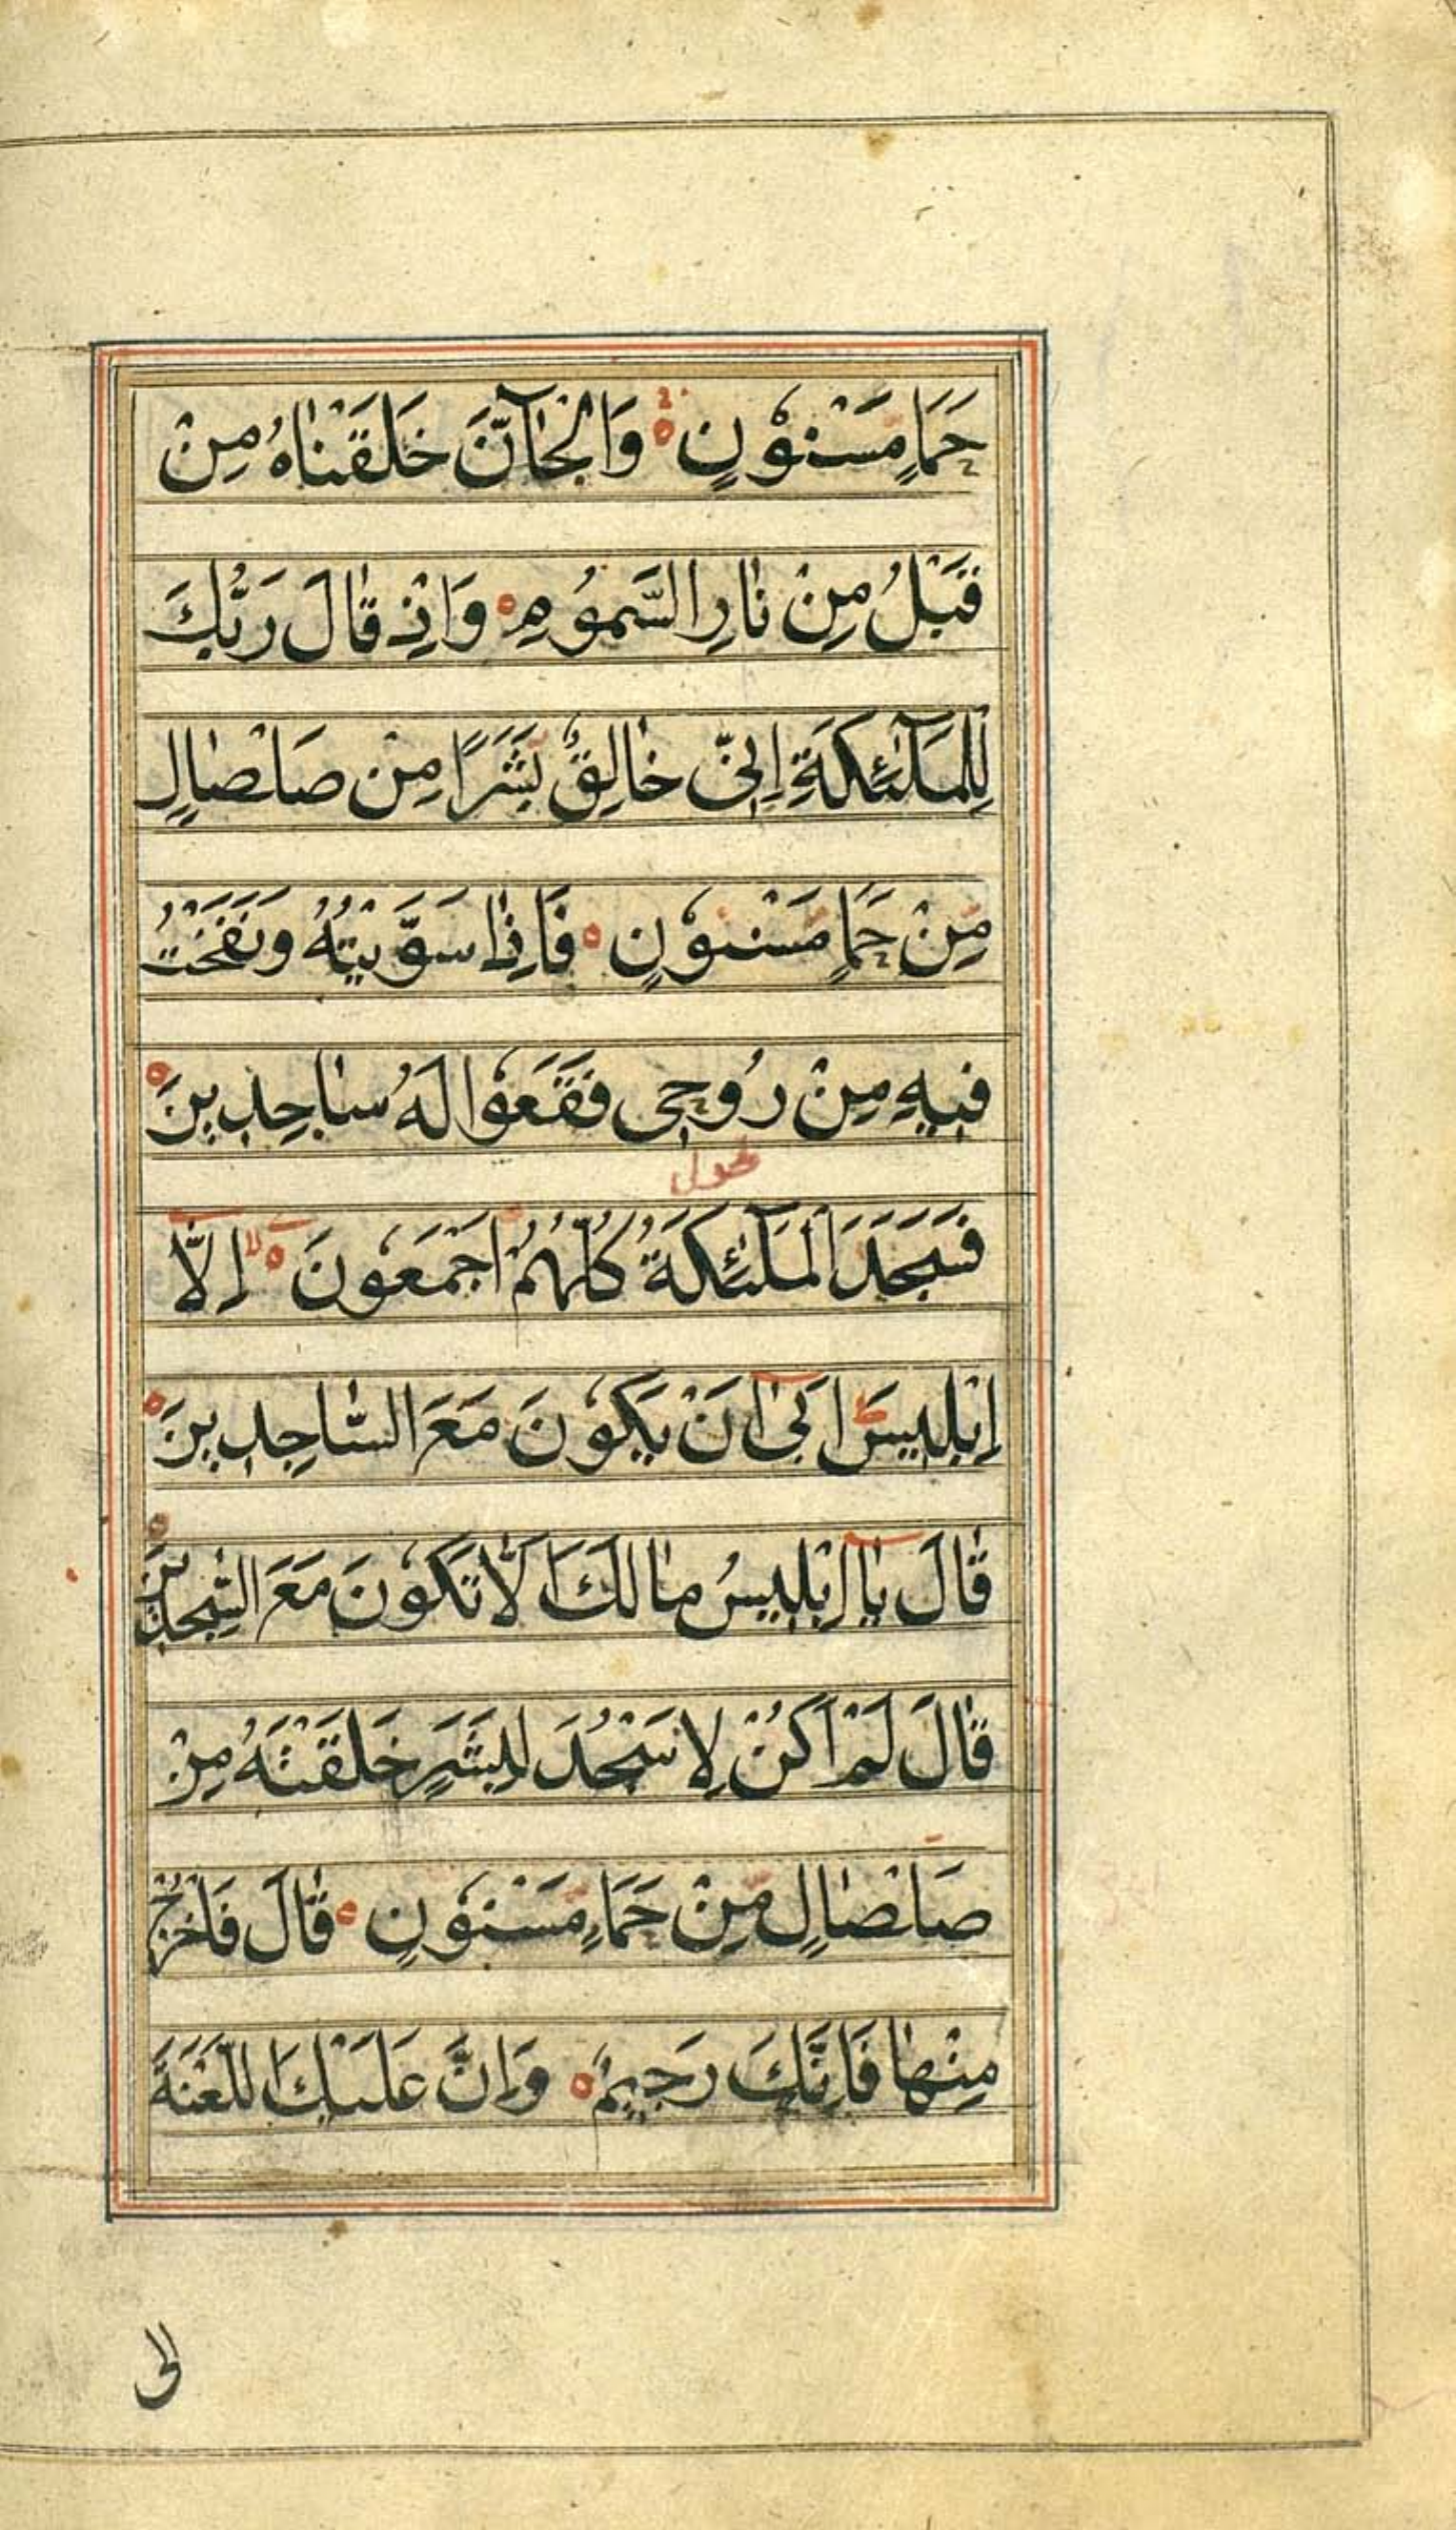 حَمَاٍ مَسْنُوْنٍ وَالْجَآنَّ خَلَقْنَاهُ مِنْ
قَبْلُ مِنْ نَارِ السَّمُوْمِ وَاِذْ قَالَ رَبُّكَ
لِلْمَلٰٓئِكَةِ اِنِّى خَالِقٌ بَشَرًا مِنْ صَلْصَالٍ
مِّنْ حَمَاٍ مَسْنُوْنٍ فَاِذَا سَوَّيْتُهُ وَنَفَخْتُ
فِيهِ مِنْ رُوحِى فَقَعُوْا لَهُ سَاجِدِينَ
فَسَجَدَ الْمَلٰٓئِكَةُ كُلُّهُمْ اَجْمَعُونَ اِلَّا
اِبْلِيسَ اَبٰى اَنْ يَكُوْنَ مَعَ السَّاجِدِينَ
قَالَ يَا اِبْلِيسُ مَا لَكَ اَلَّا تَكُوْنَ مَعَ السّٰجِدِينَ
قَالَ لَمْ اَكُنْ لِاَسْجُدَ لِبَشَرٍ خَلَقْتَهُ مِنْ
صَلْصَالٍ مِّنْ حَمَاٍ مَسْنُوْنٍ قَالَ فَاخْرُجْ
مِنْهَا فَاِنَّكَ رَجِيمٌ وَاِنَّ عَلَيْكَ اللَّعْنَةَ
الى